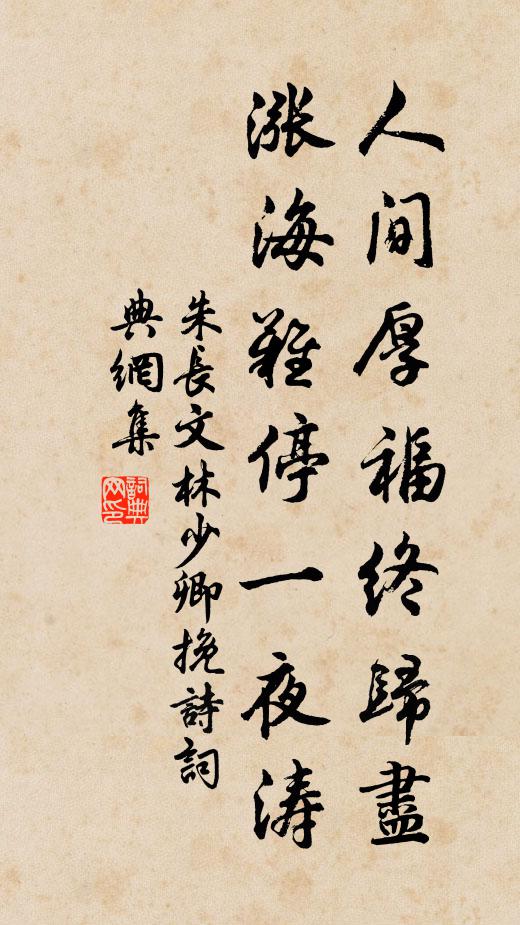 人间厚福终歸盡
涨海難停一夜涛
朱長文林少卿挽詩詞
典網集
詞典网印